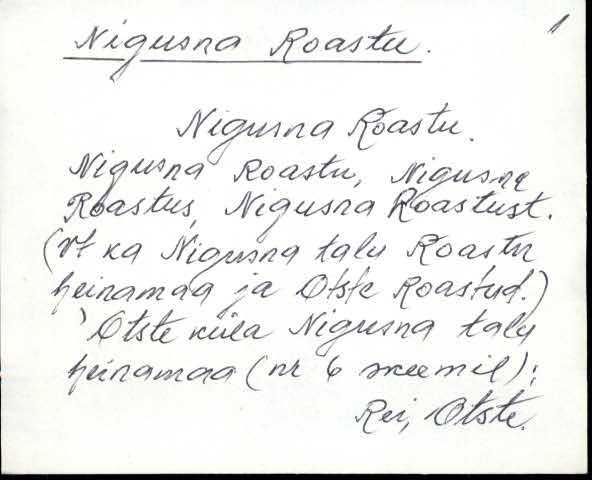 1
Nigusna Roastu.
Nigusna Roastu.
Nigusna Roastu, Nigusna
Roastus, Nigusna Roastust.
(Vt ka Nigusna talu Roastu
heinamaa ja Otste Roastud.)
'Otste küla Nigusna talu
heinamaa (nr 6 skeemil);
Rei, Otste.